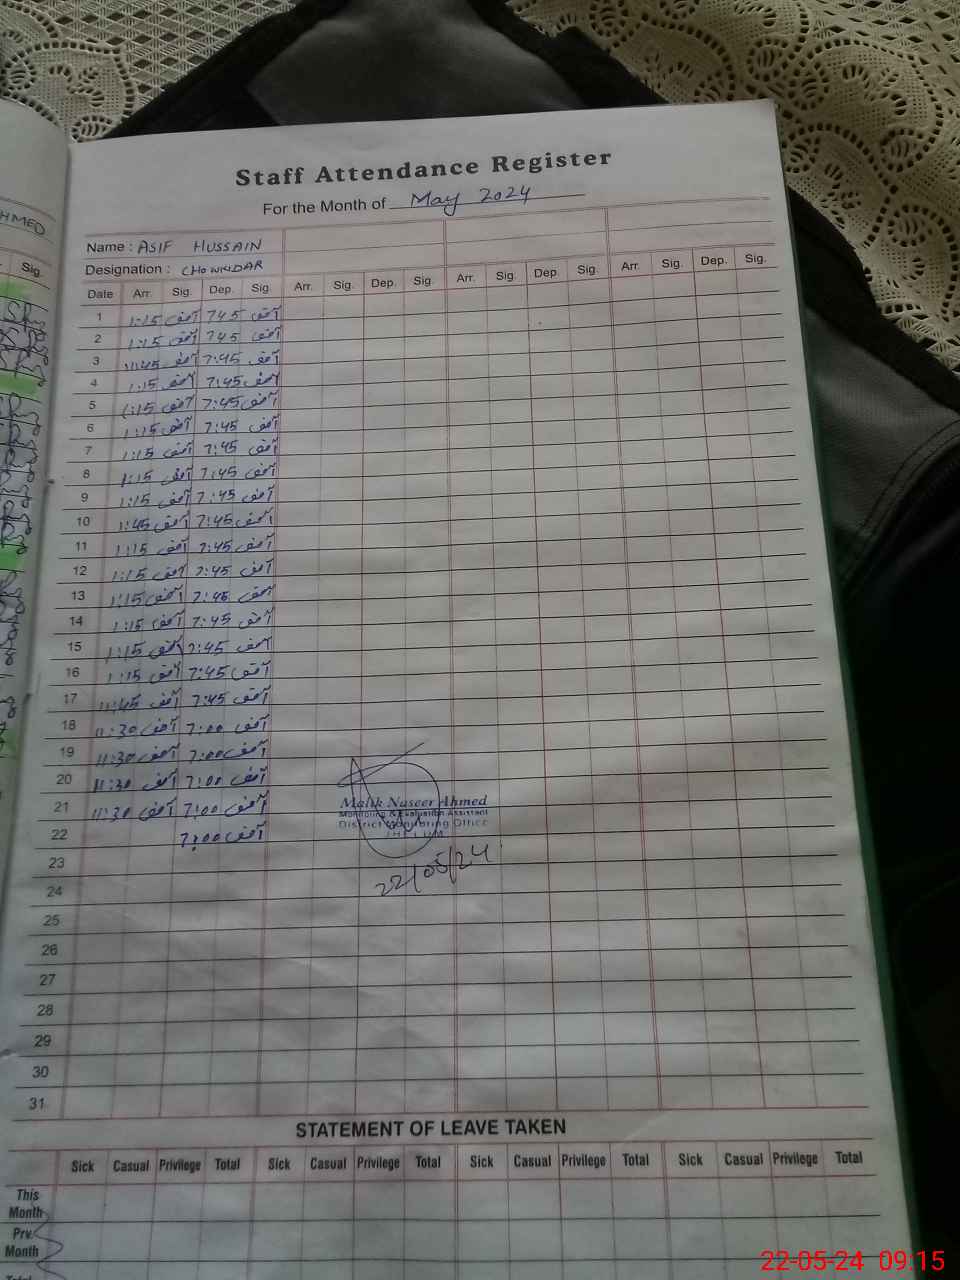 HMED
Sig.
Staff Attendance Register
For the Month of May 2024
Name : ASIF HUSSAIN
Designation : CHOWKIDAR
Date Arr. Sig. Dep. Sig. Arr. Sig. Dep. Sig. Arr. Sig. Dep. Sig. Arr. Sig. Dep. Sig.
1 1:15 آصف 745 آصف
2 1:15 آصف 745 آصف
3 11:45 آصف 7:45 آصف
4 1:15 آصف 7:45 آصف
5 1:15 آصف 7:45 آصف
6 1:15 آصف 7:45 آصف
7 1:15 آصف 7:45 آصف
8 1:15 آصف 7:45 آصف
9 1:15 آصف 7:45 آصف
10 1:45 آصف 7:45 آصف
11 1:15 آصف 7:45 آصف
12 1:15 آصف 7:45 آصف
13 1:15 آصف 7:45 آصف
14 1:15 آصف 7:45 آصف
15 1:15 آصف 7:45 آصف
16 1:15 آصف 7:45 آصف
17 11:45 آصف 7:45 آصف
18 11:30 آصف 7:00 آصف
19 11:30 آصف 7:00 آصف
20 11:30 آصف 7:00 آصف
21 11:30 آصف 7:00 آصف
22 7:00 آصف
Malik Naseer Ahmed
Monitoring & Evaluation Assistant
District Monitoring Office
JHELUM
22/05/24
23
24
25
26
27
28
29
30
31
STATEMENT OF LEAVE TAKEN
Sick Casual Privilege Total Sick Casual Privilege Total Sick Casual Privilege Total Sick Casual Privilege Total
This Month
Prv. Month
Total
22-05-24 09:15